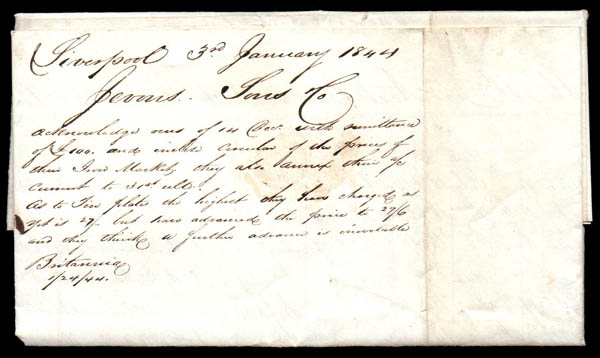 Liverpool 3rd January 1844
Jevons. Sons & Co
acknowledge ours of 14 Decr with remittance
of £100. and inclose circular of the prices of
their Iron Market, they also annex their a/c
current to 31st ulto.
As to Tin plates the highest they have charged us
yet is 27/ but have advanced the price to 27/6
and they think a further advance is inevitable
Britannia
1/24/44.